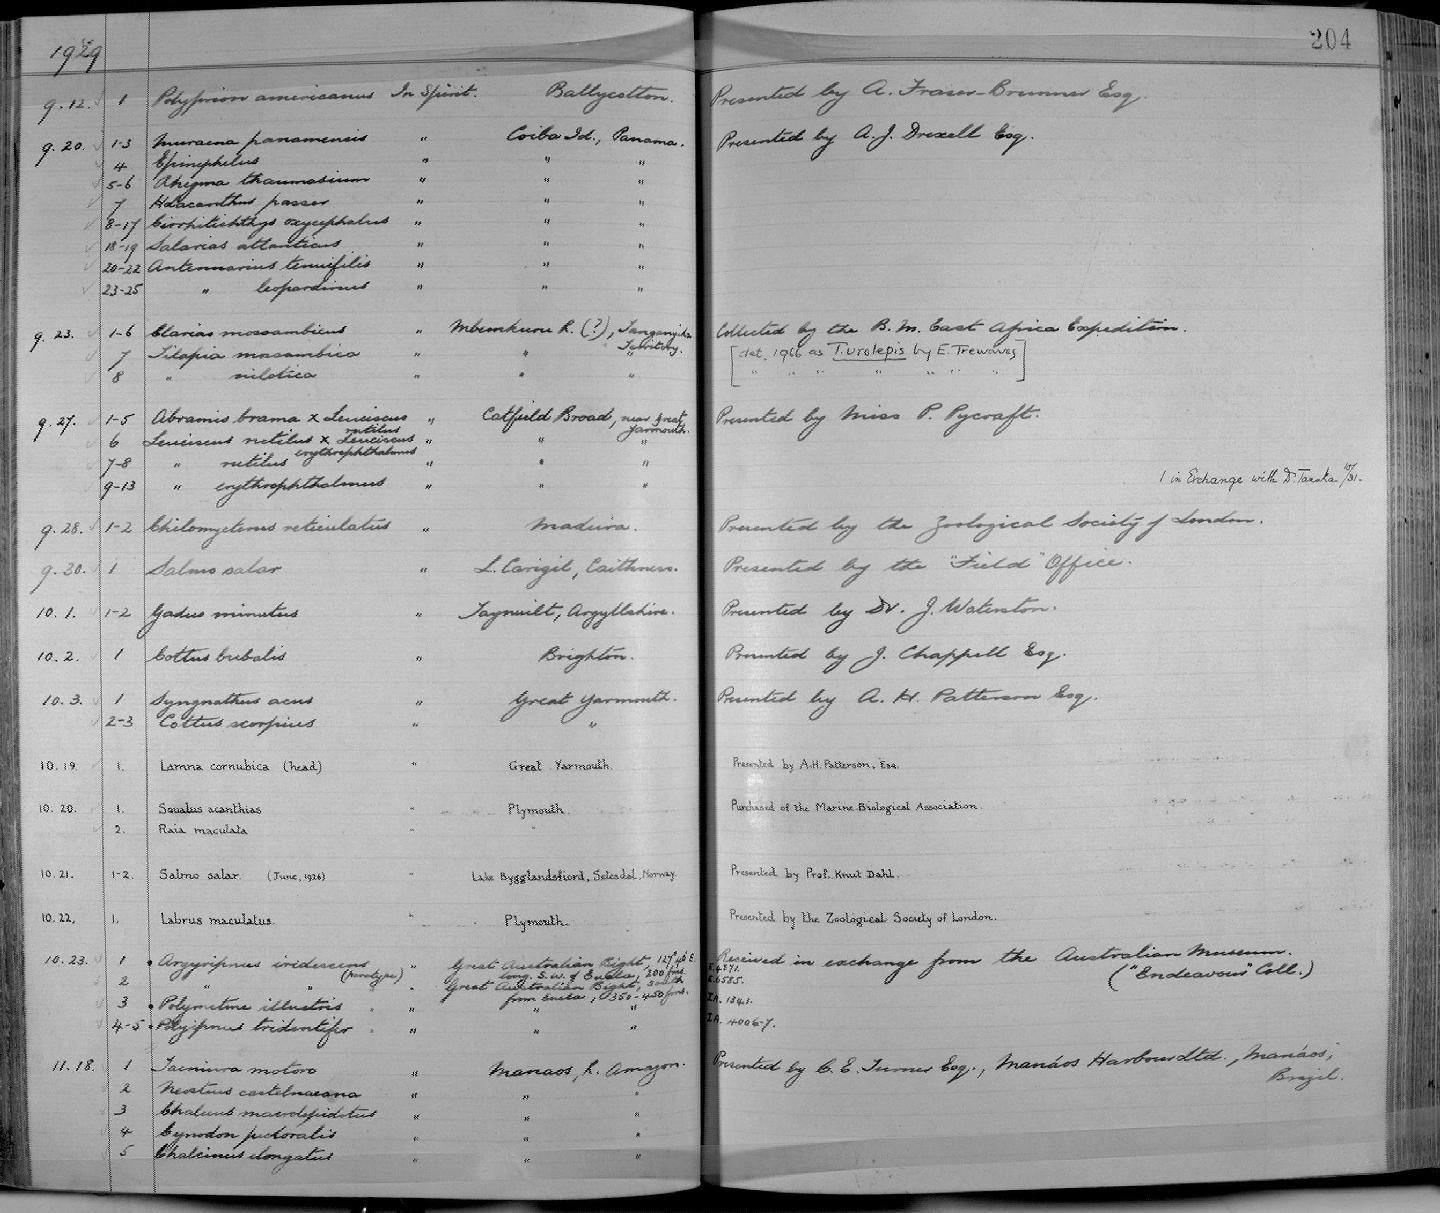 1929
204
9.12. 1 Polyprion americanus In Spirit. Ballycotton. Presented by A. Fraser-Brunner Esq.
9.20. 1-3 Muraena panamensis " Coiba Id., Panama. Presented by A. J. Drexell Esq.
4 Epinephelus " " "
5-6 thaumasium " " "
7 Holacanthus passer " " "
8-17 Cirrhitichthys oxycephalus " " "
18-19 Salarias atlanticus " " "
20-22 Antennarius tenuifilis " " "
23-25 " leopardinus " " "
9.23. 1-6 Clarias mossambicus " Mbemkuru R. (?), Tanganyika Collected by the B.M. East Africa Expedition.
Territory.
7 Tilapia mosambica " " " [det. 1966 as T. urolepis by E. Trewavas]
8 " nilotica " " " " " " " " " "
9.27. 1-5 Abramis brama x Leuciscus " Catfield Broad, near Great Presented by Miss P. Pycraft.
rutilus Yarmouth.
6 Leuciscus rutilus x Leuciscus " " "
erythrophthalmus
7-8 " rutilus " " "
9-13 " erythrophthalmus " " " 1 in Exchange with Dr. Tanaka 10/31.
9.28. 1-2 Chilomycterus reticulatus " Madeira. Presented by the Zoological Society of London.
9.30. 1 Salmo salar " L. Carigil, Caithness. Presented by the "Field" Office.
10.1. 1-2 Gadus minutus " Taynuilt, Argyllshire. Presented by Dr. J. Waterston.
10.2. 1 Cottus bubalis " Brighton. Presented by J. Chappell Esq.
10.3. 1 Syngnathus acus " Great Yarmouth. Presented by A. H. Patterson Esq.
2-3 Cottus scorpius " "
10.19. 1. Lamna cornubica (head) " Great Yarmouth. Presented by A.H. Patterson, Esq.
10.20. 1. Squalus acanthias " Plymouth. Purchased of the Marine Biological Association.
2. Raia maculata " "
10.21. 1-2. Salmo salar. (June, 1926) " Lake Bygglandsfiord, Setesdal, Norway. Presented by Prof. Knut Dahl.
10.22. 1. Labrus maculatus. " Plymouth. Presented by the Zoological Society of London.
10.23. 1 Argyripnus iridescens " Great Australian Bight, 127° 40' E. Received in exchange from the Australian Museum.
(Paratype) long. S.W. of Eucla, 200 fms. E.4871. ("Endeavour" Coll.)
2 " " " Great Australian Bight, South E.6585.
from Eucla, 350-450 fms.
3 Polymetme illustris " " " IA. 1341.
4-5 Polyipnus tridentifer " " " IA. 4006-7.
11.18. 1 Taeniura motoro " Manaos, R. Amazon. Presented by C. E. Turner Esq., Manáos Harbour Ltd., Manáos,
Brazil.
2 castelnaeana " " "
3 Chalceus macrolepidotus " " "
4 Cynodon pectoralis " " "
5 Chalcinus elongatus " " "